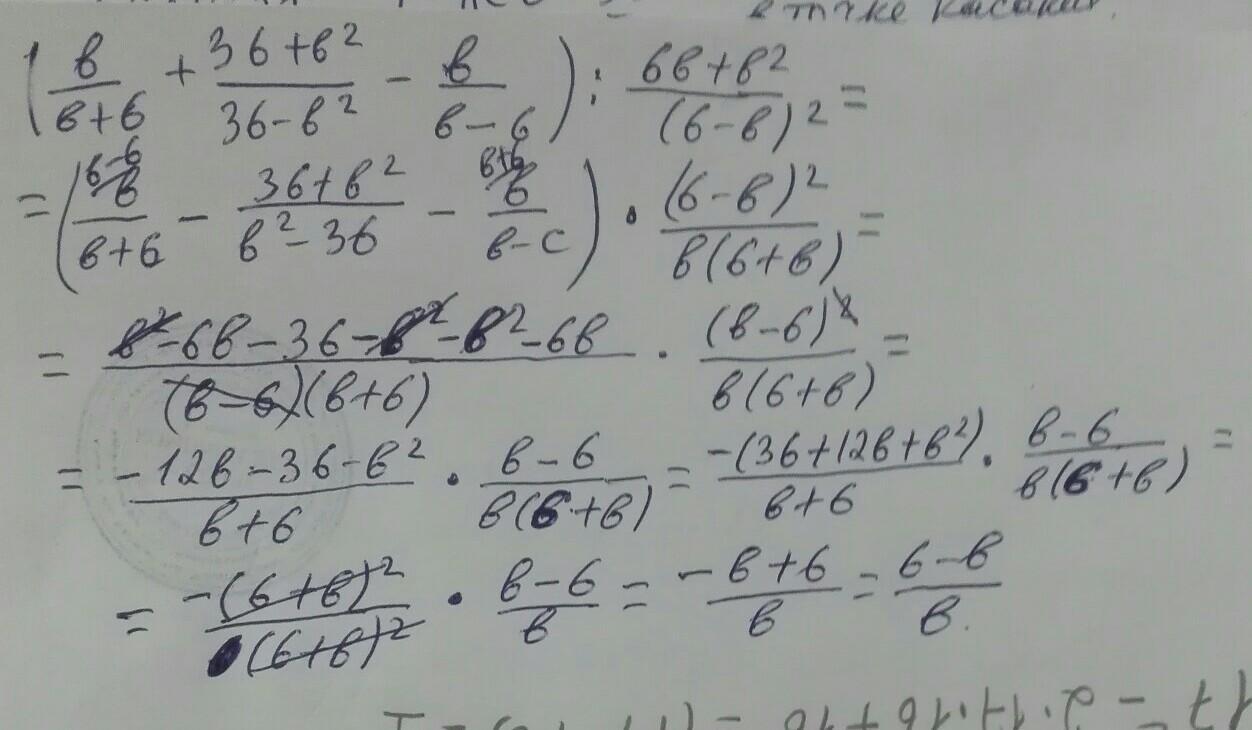 в точке касания.
( в/(в+6) + (36+в²)/(36-в²) - в/(в-6) ) : (6в+в²)/(6-в)² =
= ( в-6 в/(в+6) - (36+в²)/(в²-36) - в+6 в/(в-с) ) · (6-в)²/(в(6+в)) =
= (в²-6в-36-в²-в²-6в)/((в-6)(в+6)) · (в-6)²/(в(6+в)) =
= (-12в-36-в²)/(в+6) · (в-6)/(в(6+в)) = (-(36+12в+в²))/(в+6) · (в-6)/(в(6+в)) =
= (-(6+в)²)/((6+в)²) · (в-6)/в = (-в+6)/в = (6-в)/в.